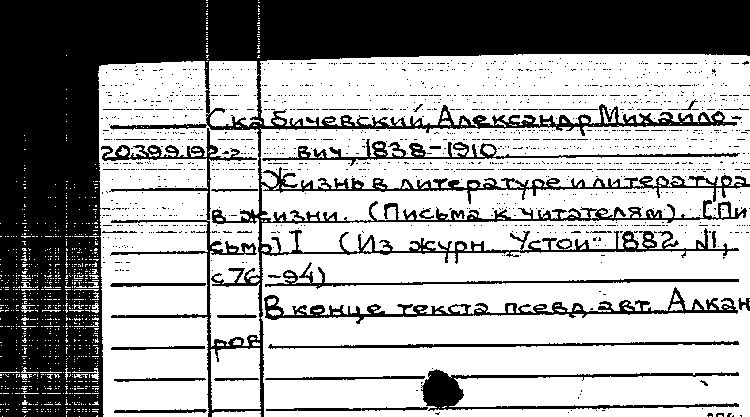 Скабичевский, Александр Михайло-
20.39.9.192-2 вич, 1838-1910.
Жизнь в литературе и литература
в жизни. (Письма к читателям). [Пи
сьмо] I (Из журн. "Устои" 1882, №1,
с 76-94)
В конце текста псевд. авт. Алкан
ров.